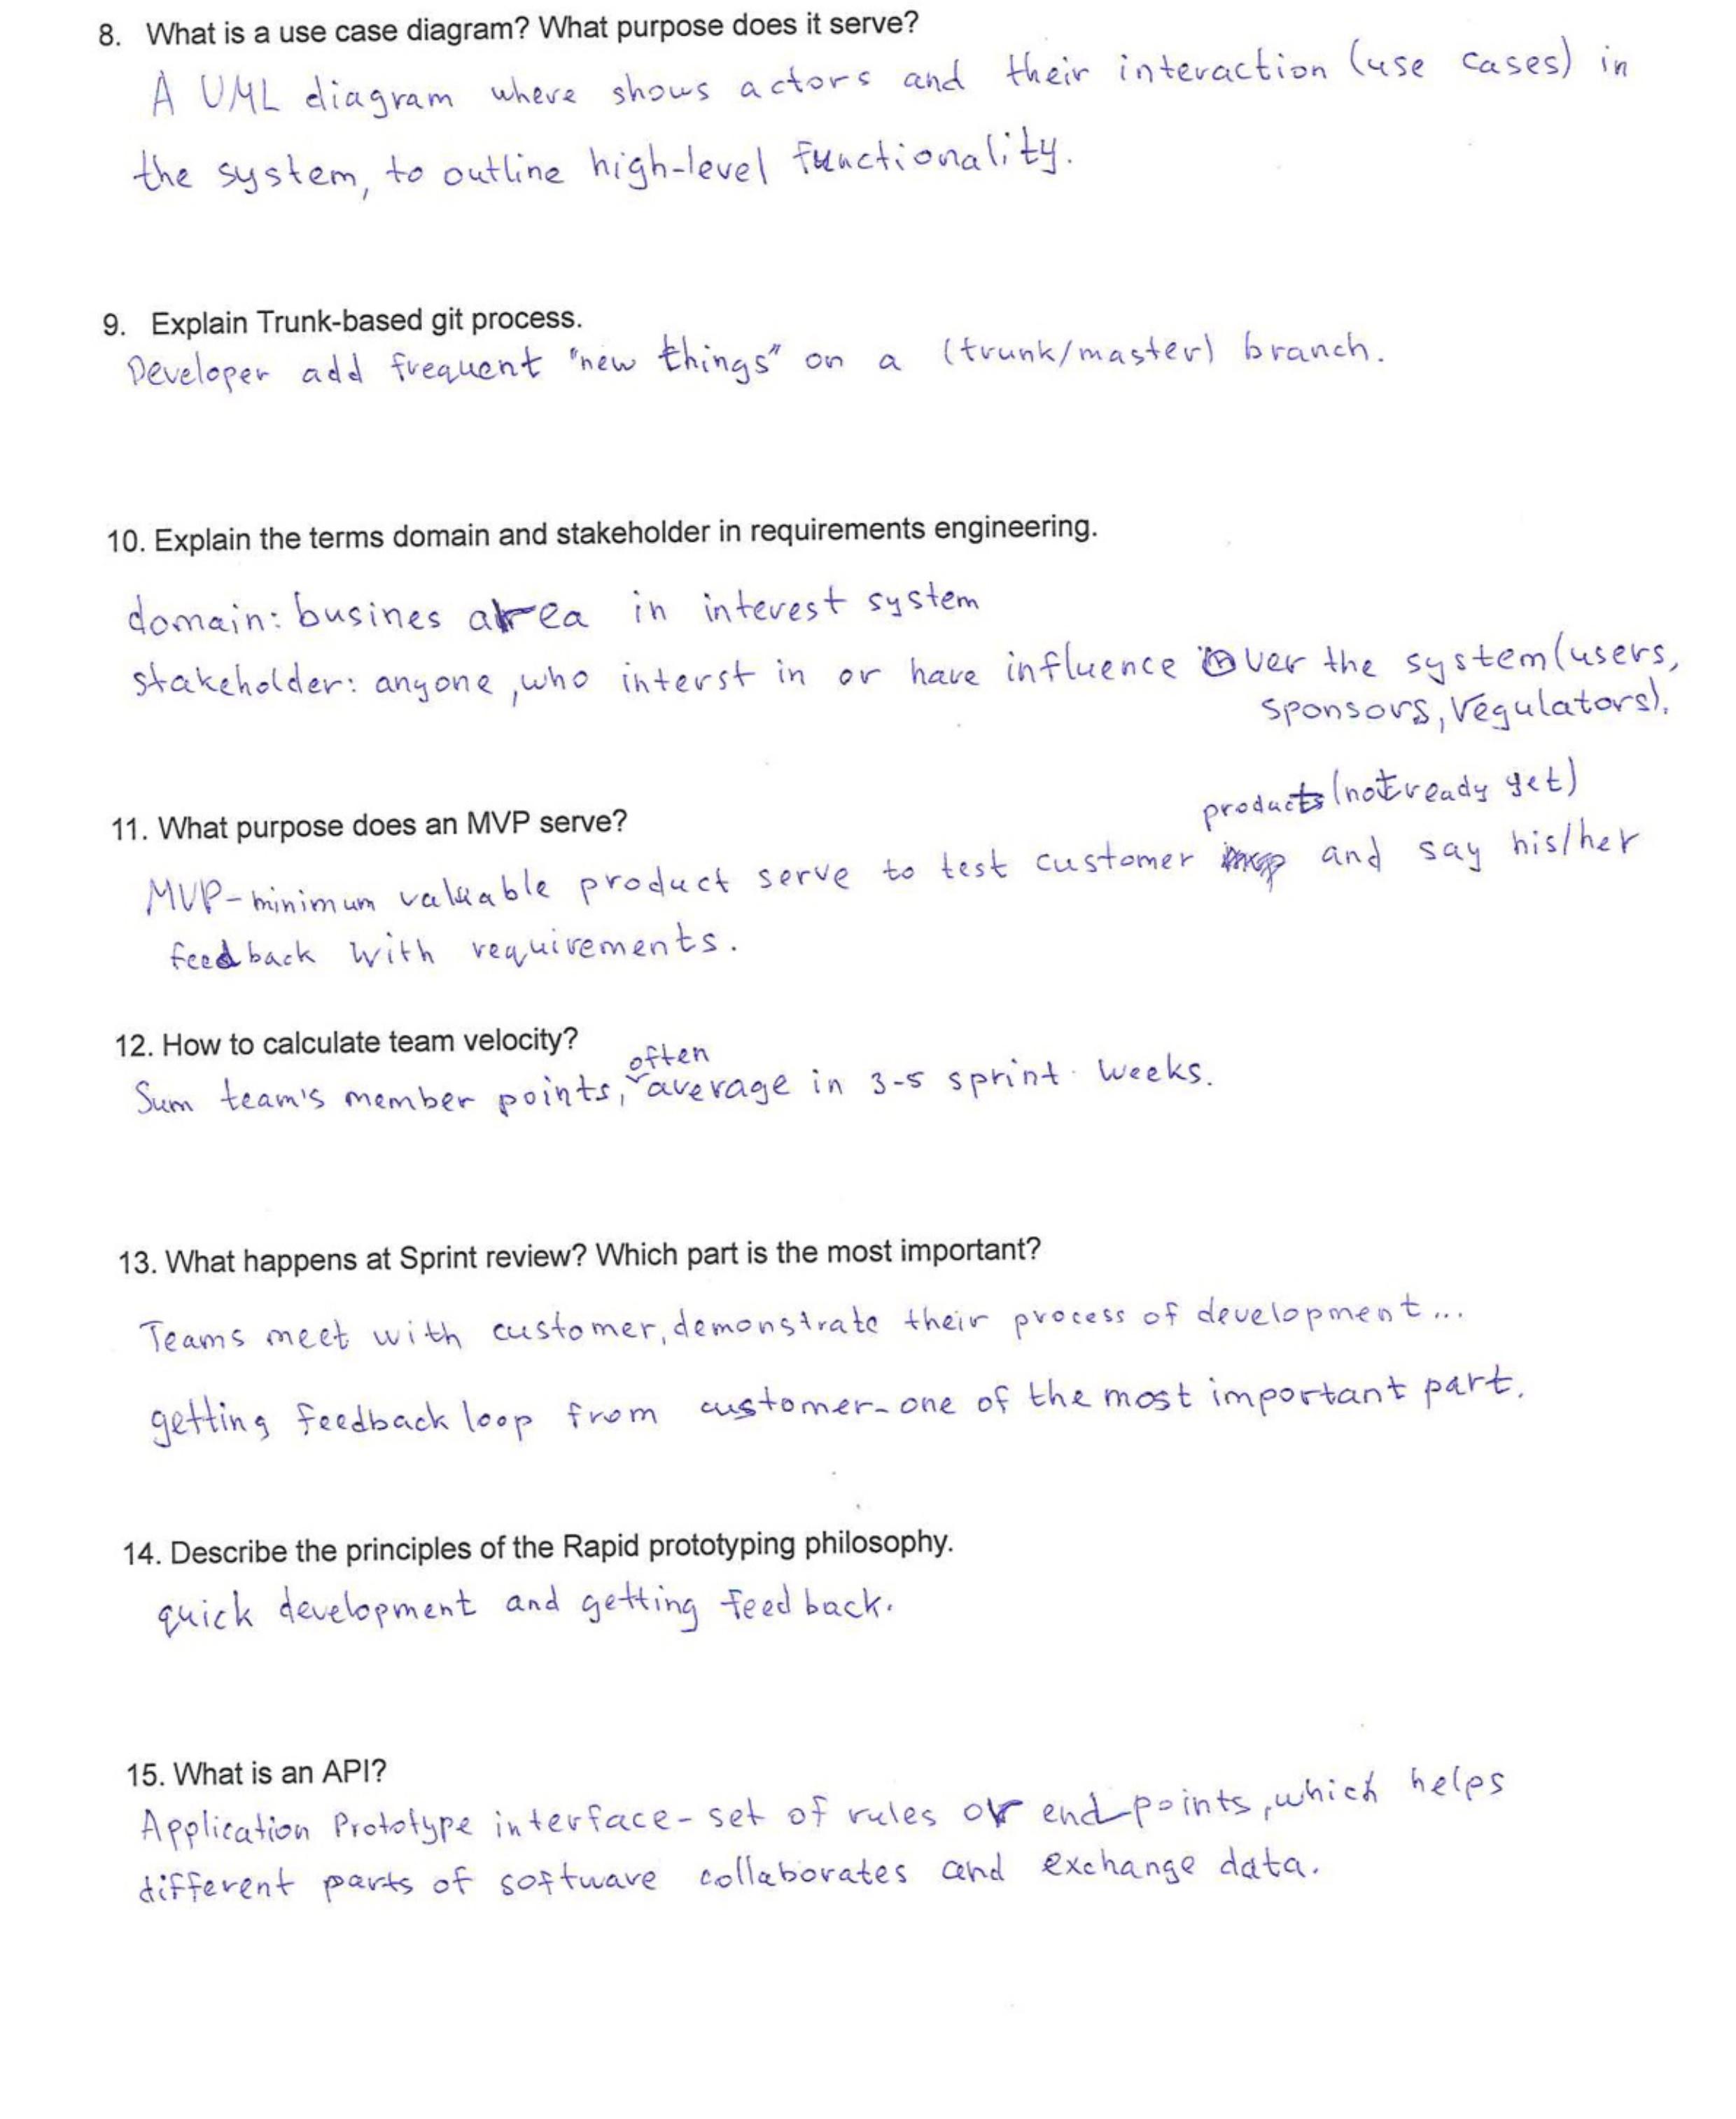 8. What is a use case diagram? What purpose does it serve?
A UML diagram where shows actors and their interaction (use cases) in
the system, to outline high-level functionality.
9. Explain Trunk-based git process.
Developer add frequent "new things" on a (trunk/master) branch.
10. Explain the terms domain and stakeholder in requirements engineering.
domain: busines area in interest system
stakeholder: anyone, who interst in or have influence over the system (users,
sponsors, regulators).
products (not ready yet)
11. What purpose does an MVP serve?
MVP - minimum valuable product serve to test customer and say his/her
feedback with requirements.
12. How to calculate team velocity?
often
Sum team's member points, average in 3-5 sprint weeks.
13. What happens at Sprint review? Which part is the most important?
Teams meet with customer, demonstrate their process of development...
getting feedback loop from customer - one of the most important part.
14. Describe the principles of the Rapid prototyping philosophy.
quick development and getting feedback.
15. What is an API?
Application Prototype interface - set of rules or endpoints, which helps
different parts of software collaborates and exchange data.